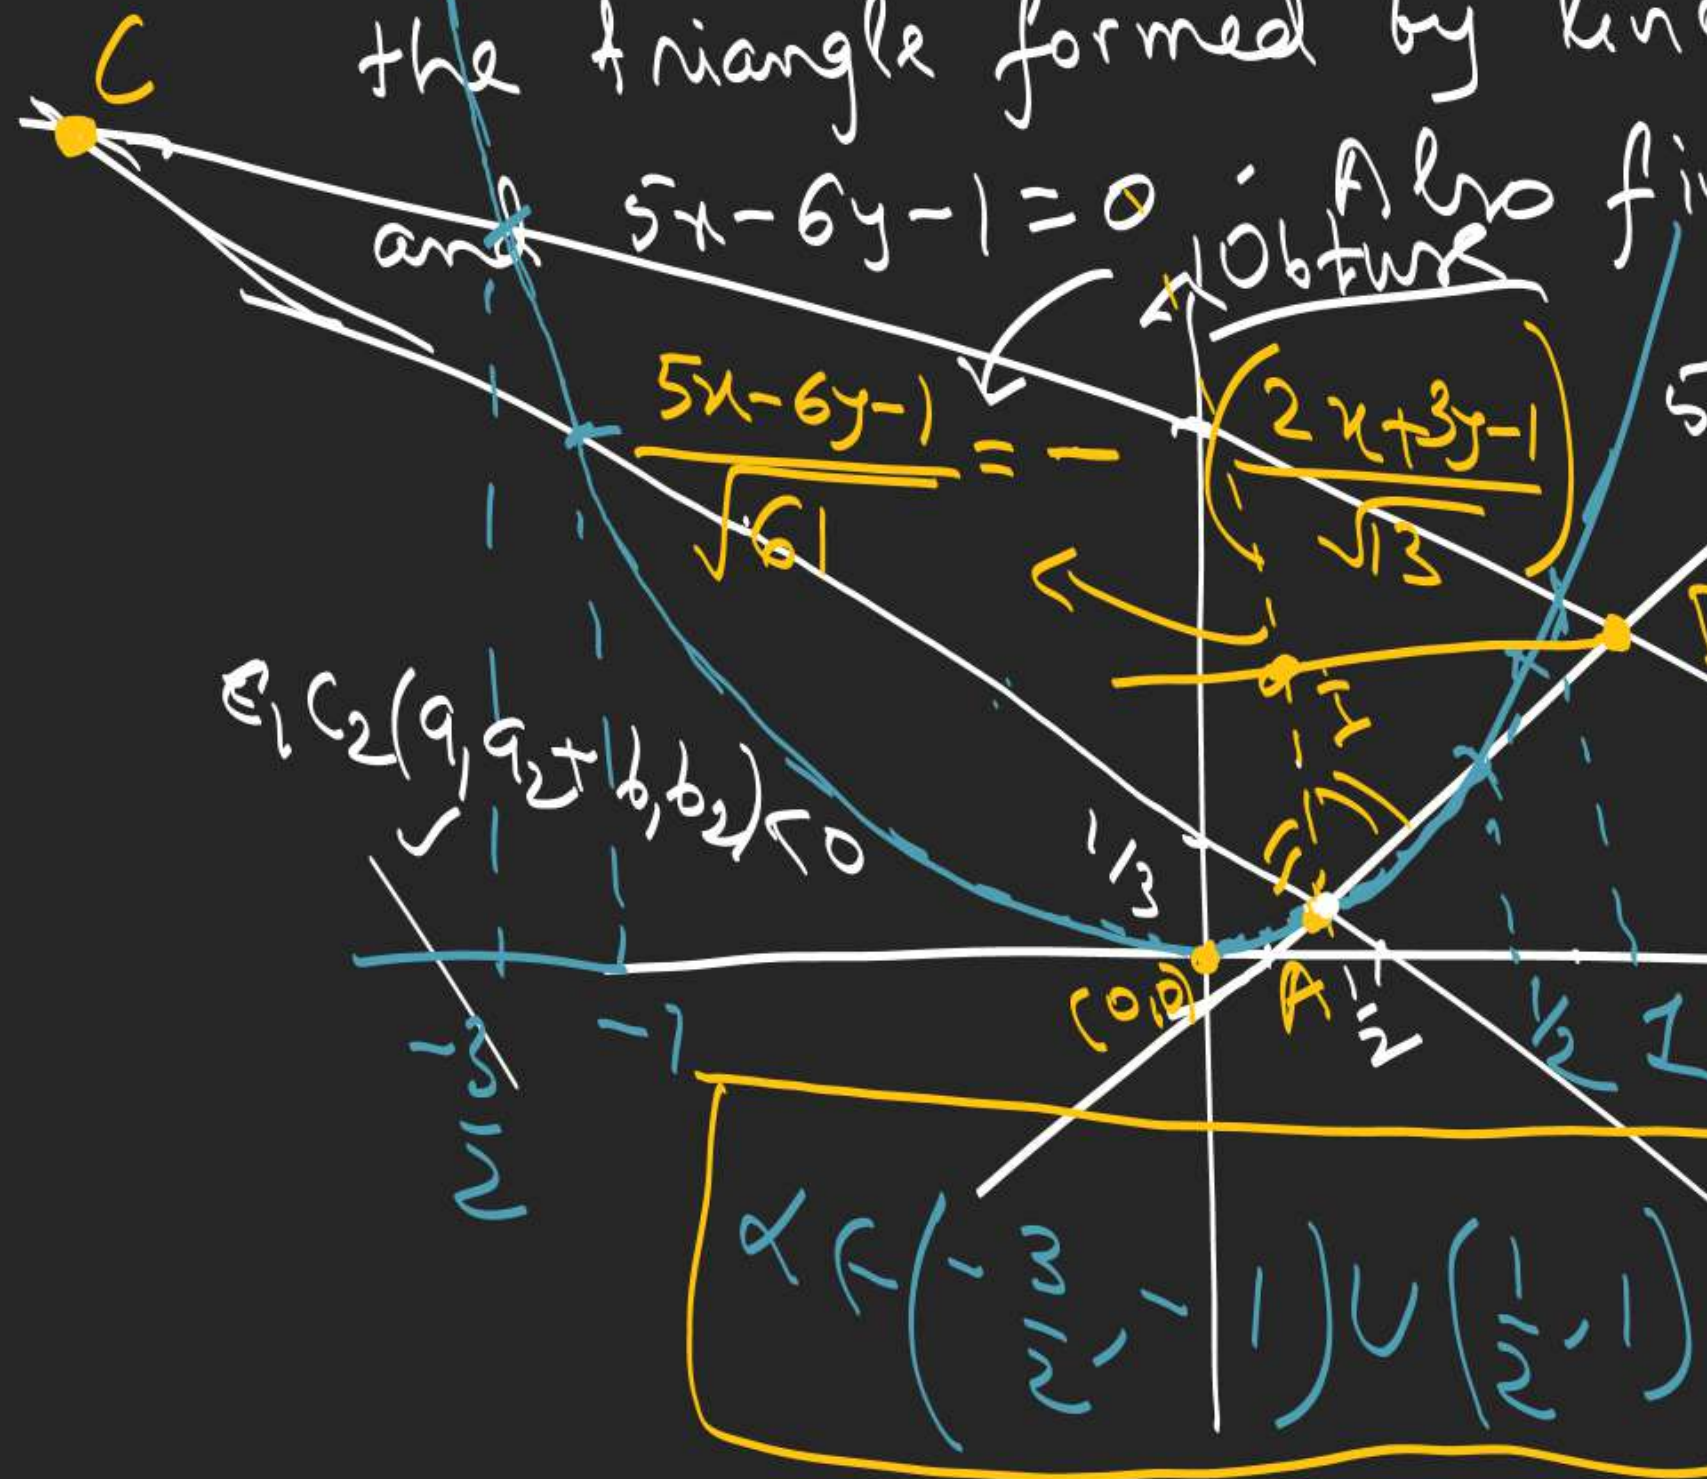 C
the triangle formed by
and 5x-6y-1=0. Also
Obtuse
5
5x-6y-1/√61 = -(2x+3y-1/√13)
I
C₁C₂(a₁a₂+b₁b₂)<0
1/3
(0,0) A 1/2 1/2 1
-3/2 -1
α ∈ (-3/2, -1) ∪ (1/2, 1)